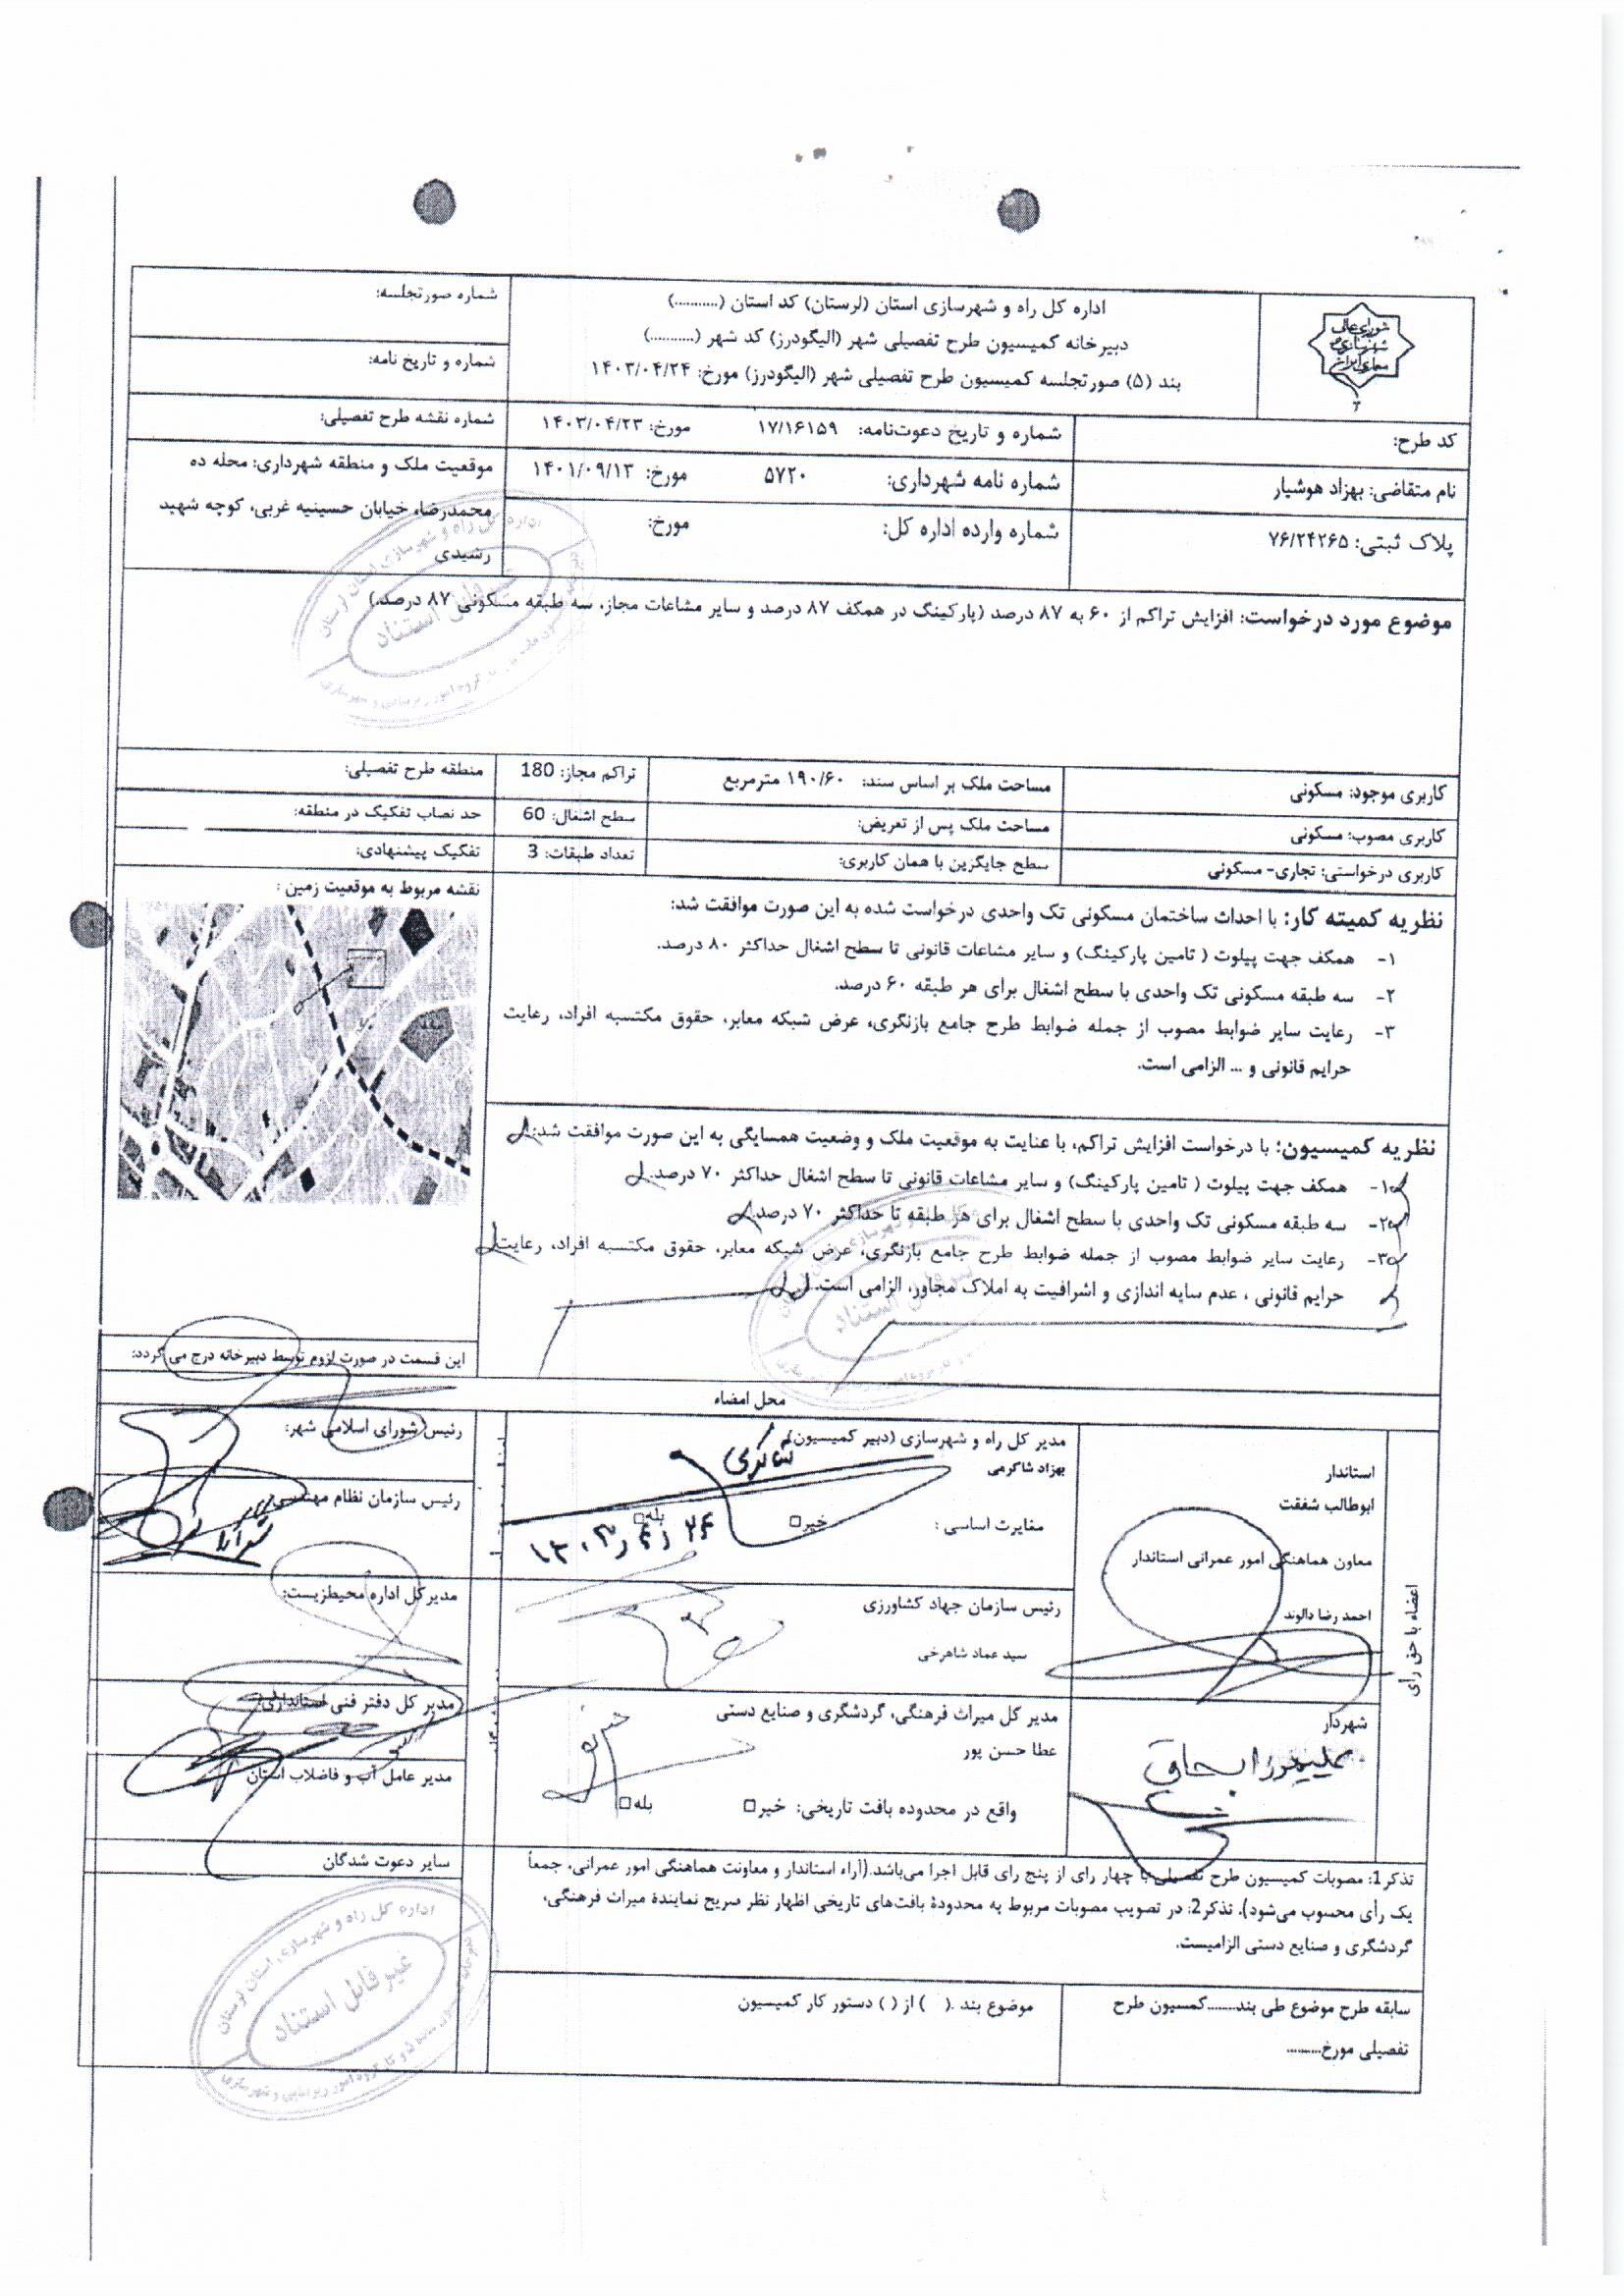 شورای عالی
شهرسازی و
معماری ایران
اداره کل راه و شهرسازی استان (لرستان) کد استان (...........)
دبیرخانه کمیسیون طرح تفصیلی شهر (الیگودرز) کد شهر (...........)
بند (۵) صورتجلسه کمیسیون طرح تفصیلی شهر (الیگودرز) مورخ: ۱۴۰۳/۰۴/۲۴
شماره صورتجلسه:
شماره و تاریخ نامه:
کد طرح:
شماره و تاریخ دعوت‌نامه: ۱۷/۱۶۱۵۹ مورخ: ۱۴۰۳/۰۴/۲۳
شماره نقشه طرح تفصیلی:
نام متقاضی: بهزاد هوشیار
شماره نامه شهرداری: ۵۷۲۰ مورخ: ۱۴۰۱/۰۹/۱۳
موقعیت ملک و منطقه شهرداری: محله ده
محمدرضا، خیابان حسینیه غربی، کوچه شهید
رشیدی
پلاک ثبتی: ۷۶/۲۴۲۶۵
شماره وارده اداره کل: مورخ:
موضوع مورد درخواست: افزایش تراکم از ۶۰ به ۸۷ درصد (پارکینگ در همکف ۸۷ درصد و سایر مشاعات مجاز، سه طبقه مسکونی ۸۷ درصد.)
کاربری موجود: مسکونی
مساحت ملک بر اساس سند: ۱۹۰/۶۰ مترمربع
تراکم مجاز: 180
منطقه طرح تفصیلی:
کاربری مصوب: مسکونی
مساحت ملک پس از تعریض:
سطح اشغال: 60
حد نصاب تفکیک در منطقه:
کاربری درخواستی: تجاری- مسکونی
سطح جایگزین با همان کاربری:
تعداد طبقات: 3
تفکیک پیشنهادی:
نظریه کمیته کار: با احداث ساختمان مسکونی تک واحدی درخواست شده به این صورت موافقت شد:
۱- همکف جهت پیلوت ( تامین پارکینگ) و سایر مشاعات قانونی تا سطح اشغال حداکثر ۸۰ درصد.
۲- سه طبقه مسکونی تک واحدی با سطح اشغال برای هر طبقه ۶۰ درصد.
۳- رعایت سایر ضوابط مصوب از جمله ضوابط طرح جامع بازنگری، عرض شبکه معابر، حقوق مکتسبه افراد، رعایت
حرایم قانونی و ... الزامی است.
نقشه مربوط به موقعیت زمین :
نظریه کمیسیون: با درخواست افزایش تراکم، با عنایت به موقعیت ملک و وضعیت همسایگی به این صورت موافقت شد:
۱- همکف جهت پیلوت ( تامین پارکینگ) و سایر مشاعات قانونی تا سطح اشغال حداکثر ۷۰ درصد.
۲- سه طبقه مسکونی تک واحدی با سطح اشغال برای هر طبقه تا حداکثر ۷۰ درصد.
۳- رعایت سایر ضوابط مصوب از جمله ضوابط طرح جامع بازنگری، عرض شبکه معابر، حقوق مکتسبه افراد، رعایت
حرایم قانونی ، عدم سایه اندازی و اشرافیت به املاک مجاور، الزامی است.
این قسمت در صورت لزوم توسط دبیرخانه درج می گردد:
محل امضاء
اعضاء با حق رأی
استاندار
ابوطالب شفقت
معاون هماهنگی امور عمرانی استاندار
احمد رضا دالوند
شهردار
مدیر کل راه و شهرسازی (دبیر کمیسیون)
بهزاد شاکرمی
مغایرت اساسی : خیر□ بله□
۱۴۰۳/۴/۲۴
رئیس سازمان جهاد کشاورزی
سید عماد شاهرخی
مدیر کل میراث فرهنگی، گردشگری و صنایع دستی
عطا حسن پور
واقع در محدوده بافت تاریخی: خیر□ بله□
رئیس شورای اسلامی شهر:
رئیس سازمان نظام مهندسی
مدیرکل اداره محیط‌زیست:
مدیر کل دفتر فنی استانداری
مدیر عامل آب و فاضلاب استان
سایر دعوت شدگان
تذکر1: مصوبات کمیسیون طرح تفصیلی با چهار رای از پنج رای قابل اجرا می‌باشد.(آراء استاندار و معاونت هماهنگی امور عمرانی، جمعاً
یک رأی محسوب می‌شود). تذکر2: در تصویب مصوبات مربوط به محدودهٔ بافت‌های تاریخی اظهار نظر صریح نمایندهٔ میراث فرهنگی،
گردشگری و صنایع دستی الزامیست.
سابقه طرح موضوع طی بند........کمسیون طرح
تفصیلی مورخ.........
موضوع بند .( ) از ( ) دستور کار کمیسیون
اداره کل راه و شهرسازی استان لرستان
غیر قابل استناد